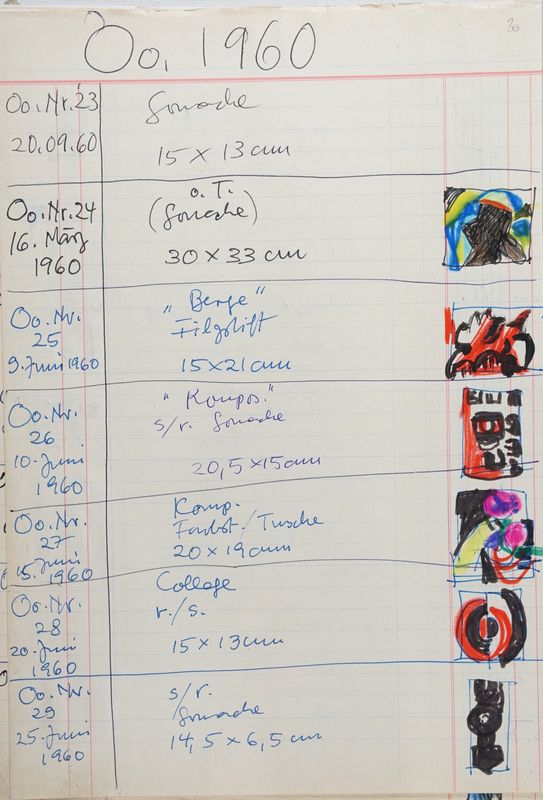 30
Oo. 1960
Oo. Nr. 23
Gouache
20.09.60
15 x 13 cm
Oo. Nr. 24
o. T.
(Gouache)
16. März
1960
30 x 33 cm
Oo. Nr.
25
"Berge"
Filzstift
9. Juni 1960
15 x 21 cm
Oo. Nr.
26
"Kompos."
s/r. Gouache
10. Juni
1960
20,5 x 15 cm
Oo. Nr.
27
Komp.
Farbst./Tusche
15. Juni
1960
20 x 19 cm
Oo. Nr.
28
Collage
r./s.
20. Juni
1960
15 x 13 cm
Oo. Nr.
29
s/r.
Gouache
25. Juni
1960
14,5 x 6,5 cm